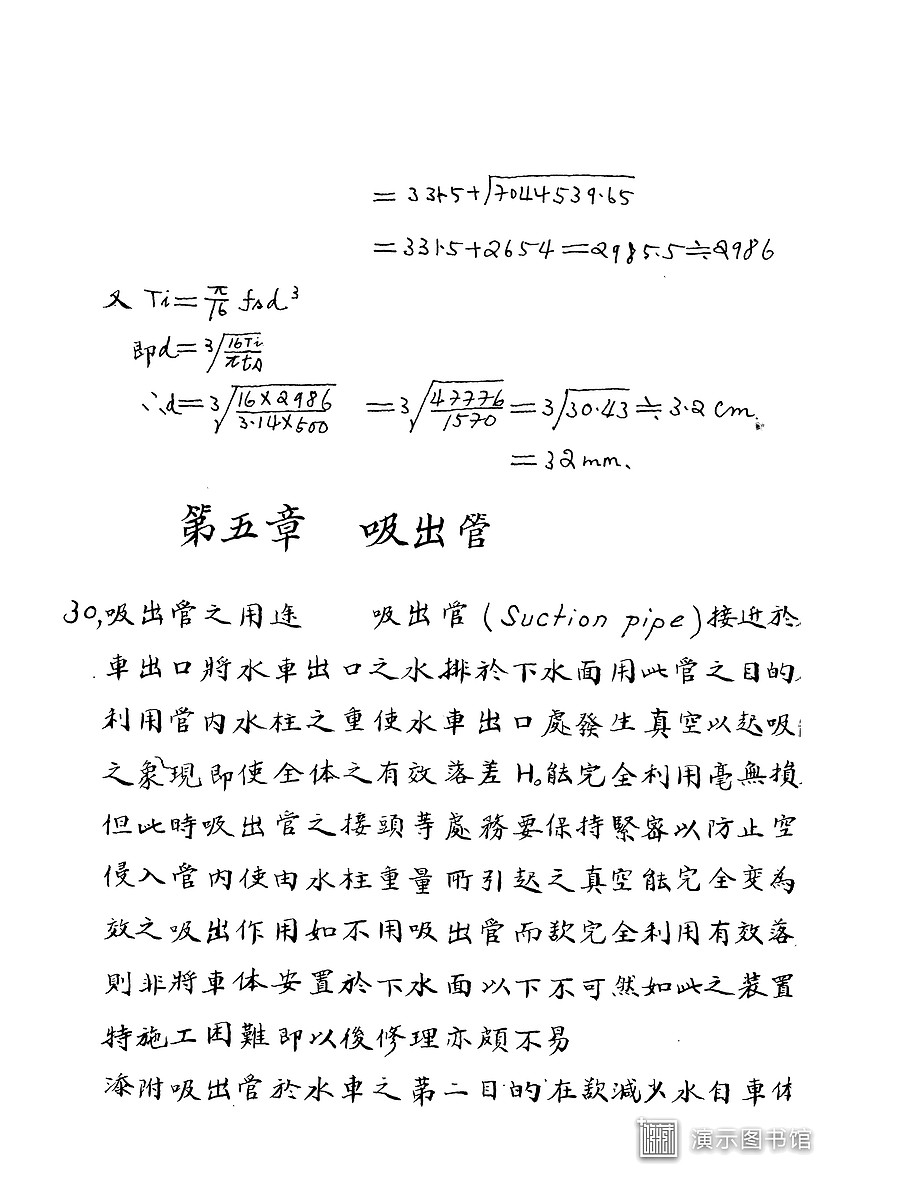 = 331.5+√7044539.65
= 331.5+2654=2985.5≒2986
又 Ti=π/16 fsd³
即d=³√16Ti/πfs
∴d=³√16×2986/3.14×500 =³√47776/1570=³√30.43≒3.2cm.
=32mm.
第五章 吸出管
30,吸出管之用途 吸出管(Suction pipe)接近於
車出口將水車出口之水排於下水面用此管之目的
利用管内水柱之重使水車出口處發生真空以起吸
之象現即使全体之有效落差H。能完全利用毫無損
但此時吸出管之接頭等處務要保持緊密以防止空
侵入管内使由水柱重量所引起之真空能完全变為
效之吸出作用如不用吸出管而欲完全利用有效落
則非將車体安置於下水面以下不可然如此之装置
特施工困難即以後修理亦頗不易
添附吸出管於水車之第二目的在欲減少水自車体
演示图书馆